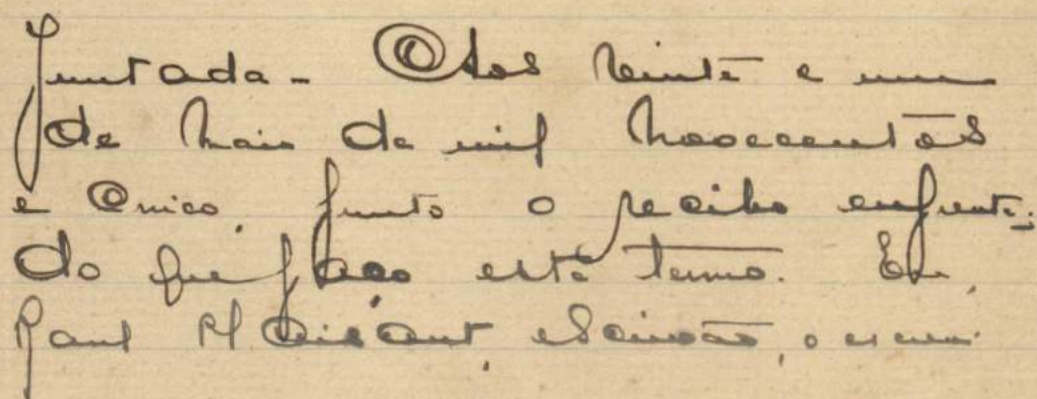 Juntada - Aos vinte e um
de Maio de mil novecentos
e cinco, junto o recibo enfrente;
do que faço este termo. Eu,
Raul Maisant, escrivão, o escrevi